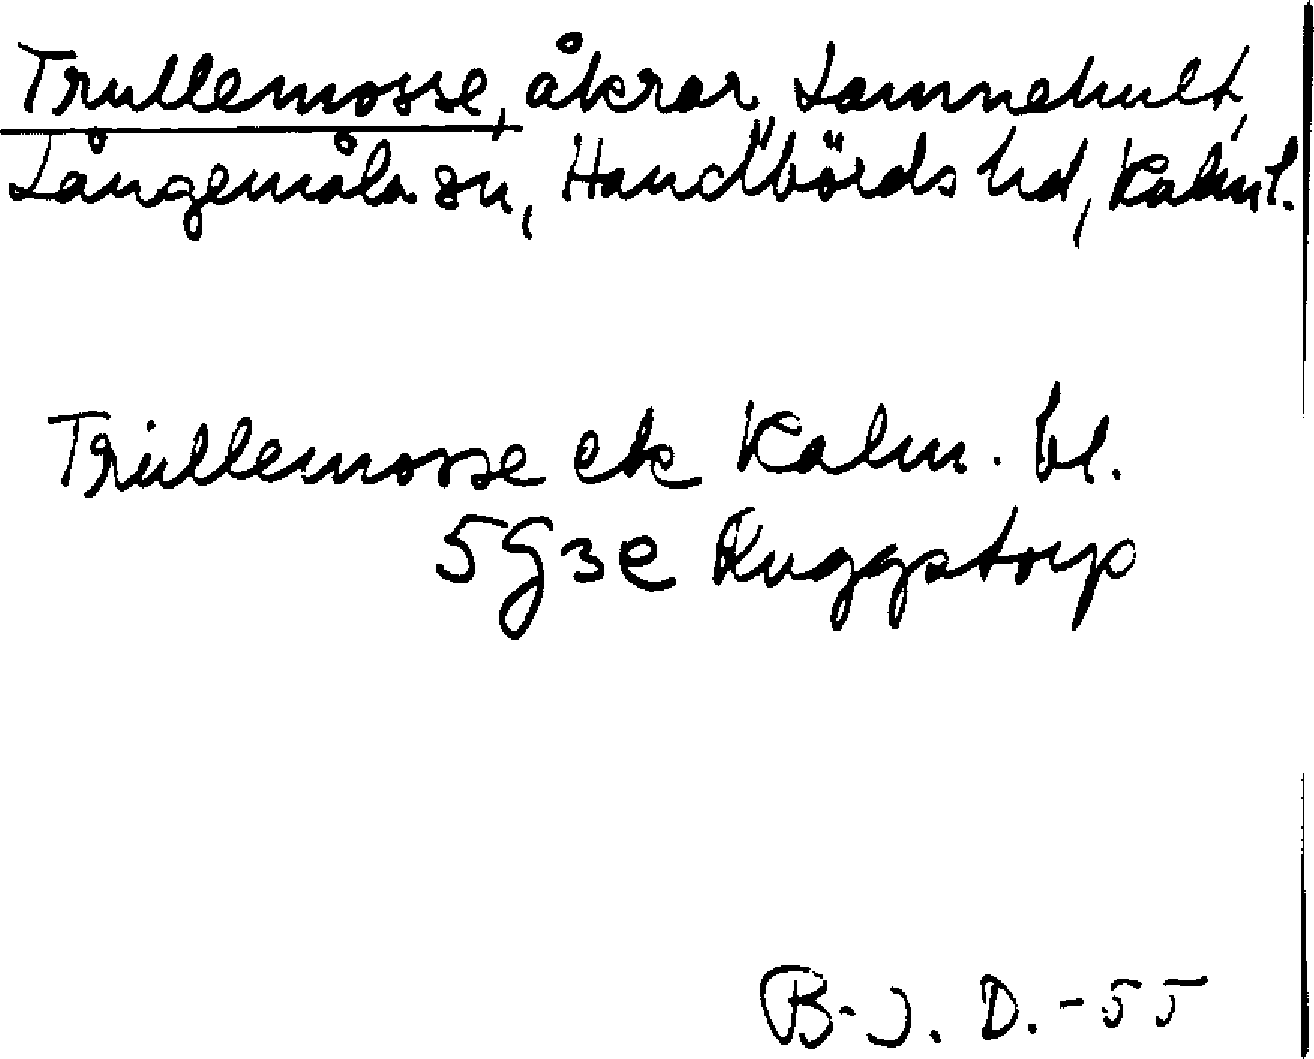 Trullemosse, åkrar, Lannehult,
Långemåla sn, Handbörds hd, Kalm l.
Trullemosse ek Kalm. bl.
5G3e Ruggstorp
B-J. D. -55